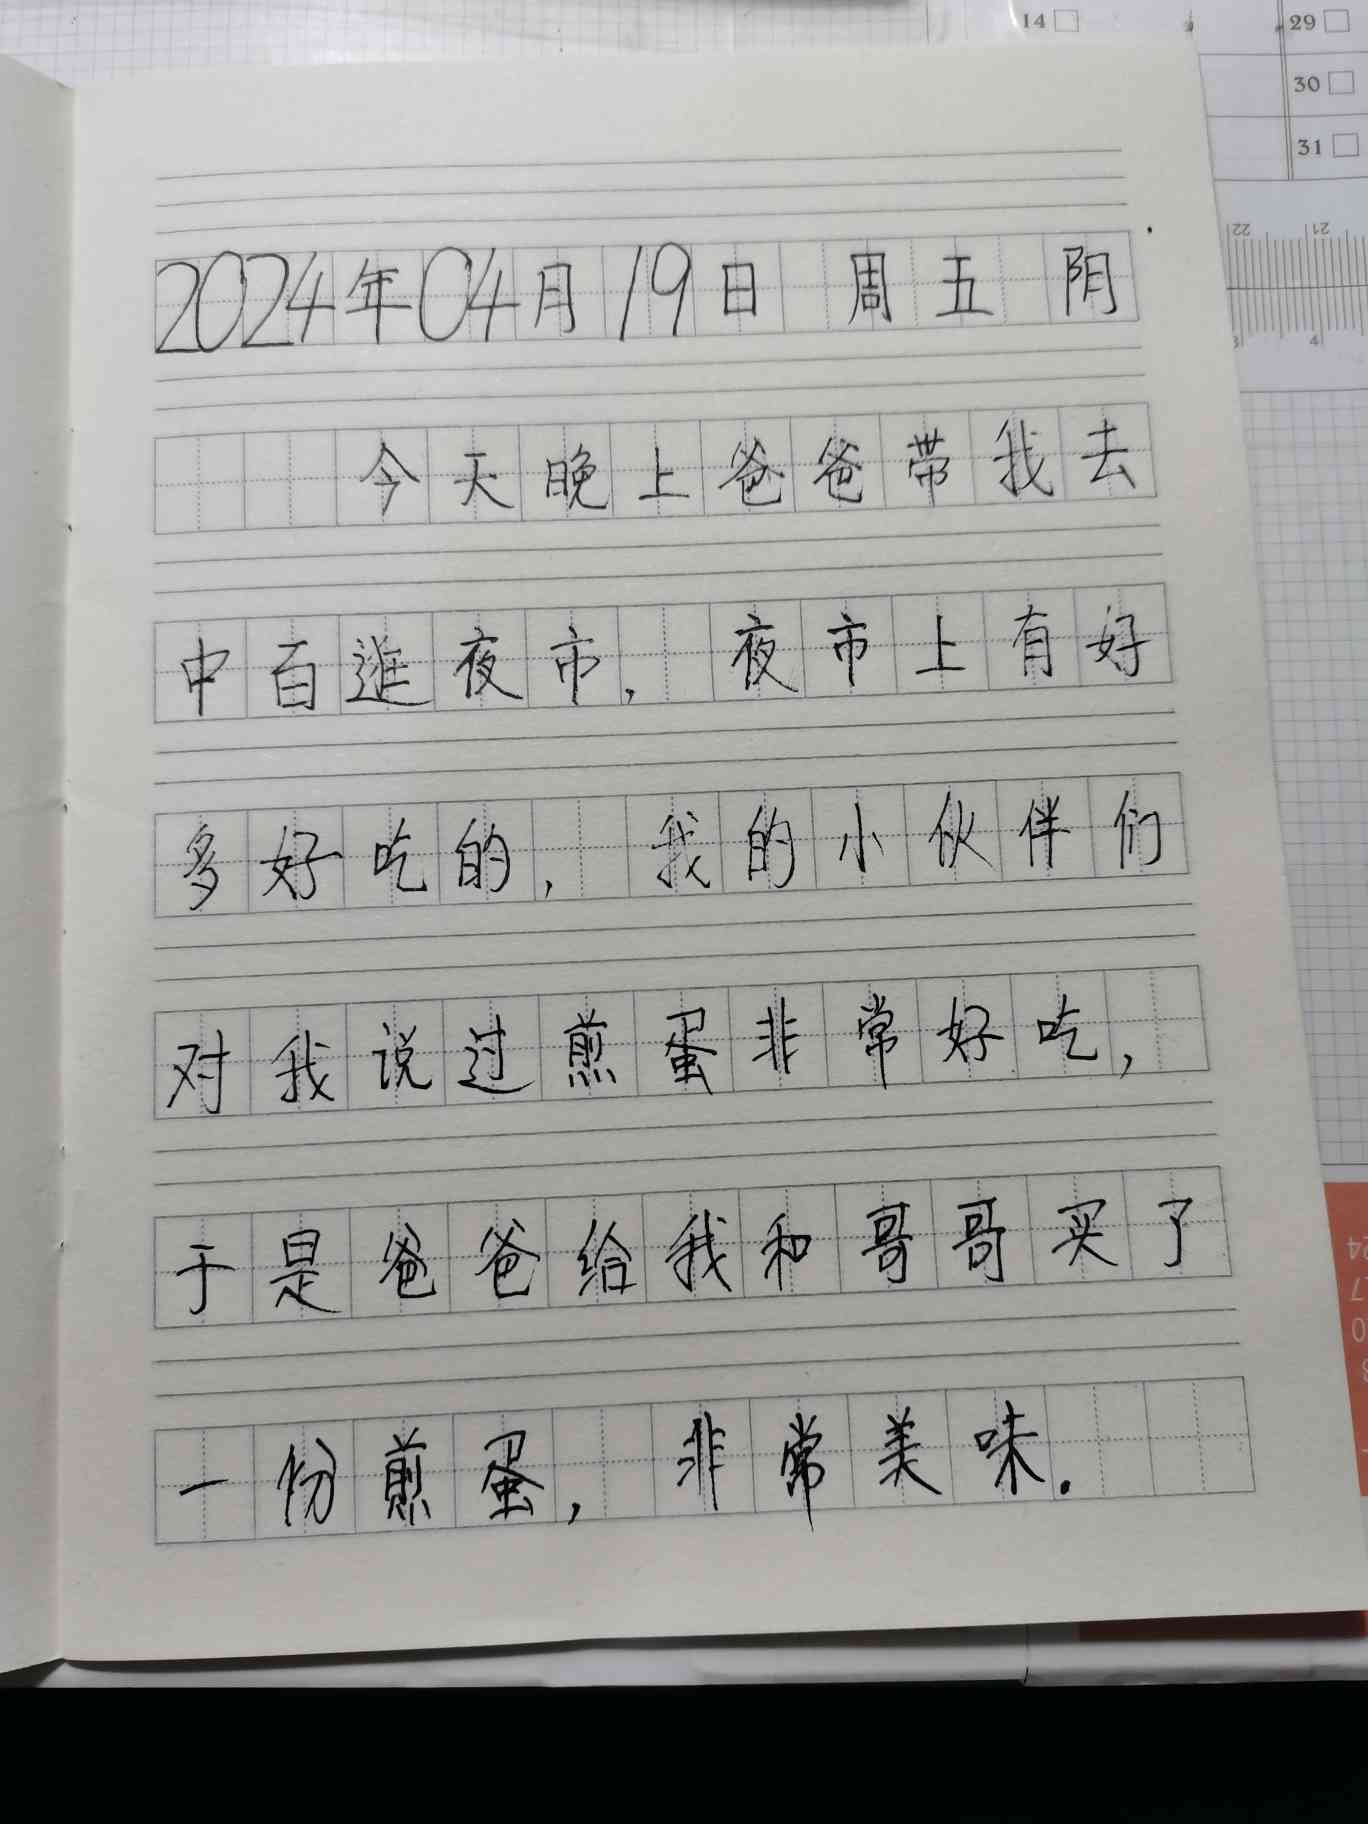 14 29
30
31
22 21
4
2024年04月19日 周五 阴
今天晚上爸爸带我去
中百逛夜市, 夜市上有好
多好吃的, 我的小伙伴们
对我说过煎蛋非常好吃,
于是爸爸给我和哥哥买了
一份煎蛋, 非常美味.